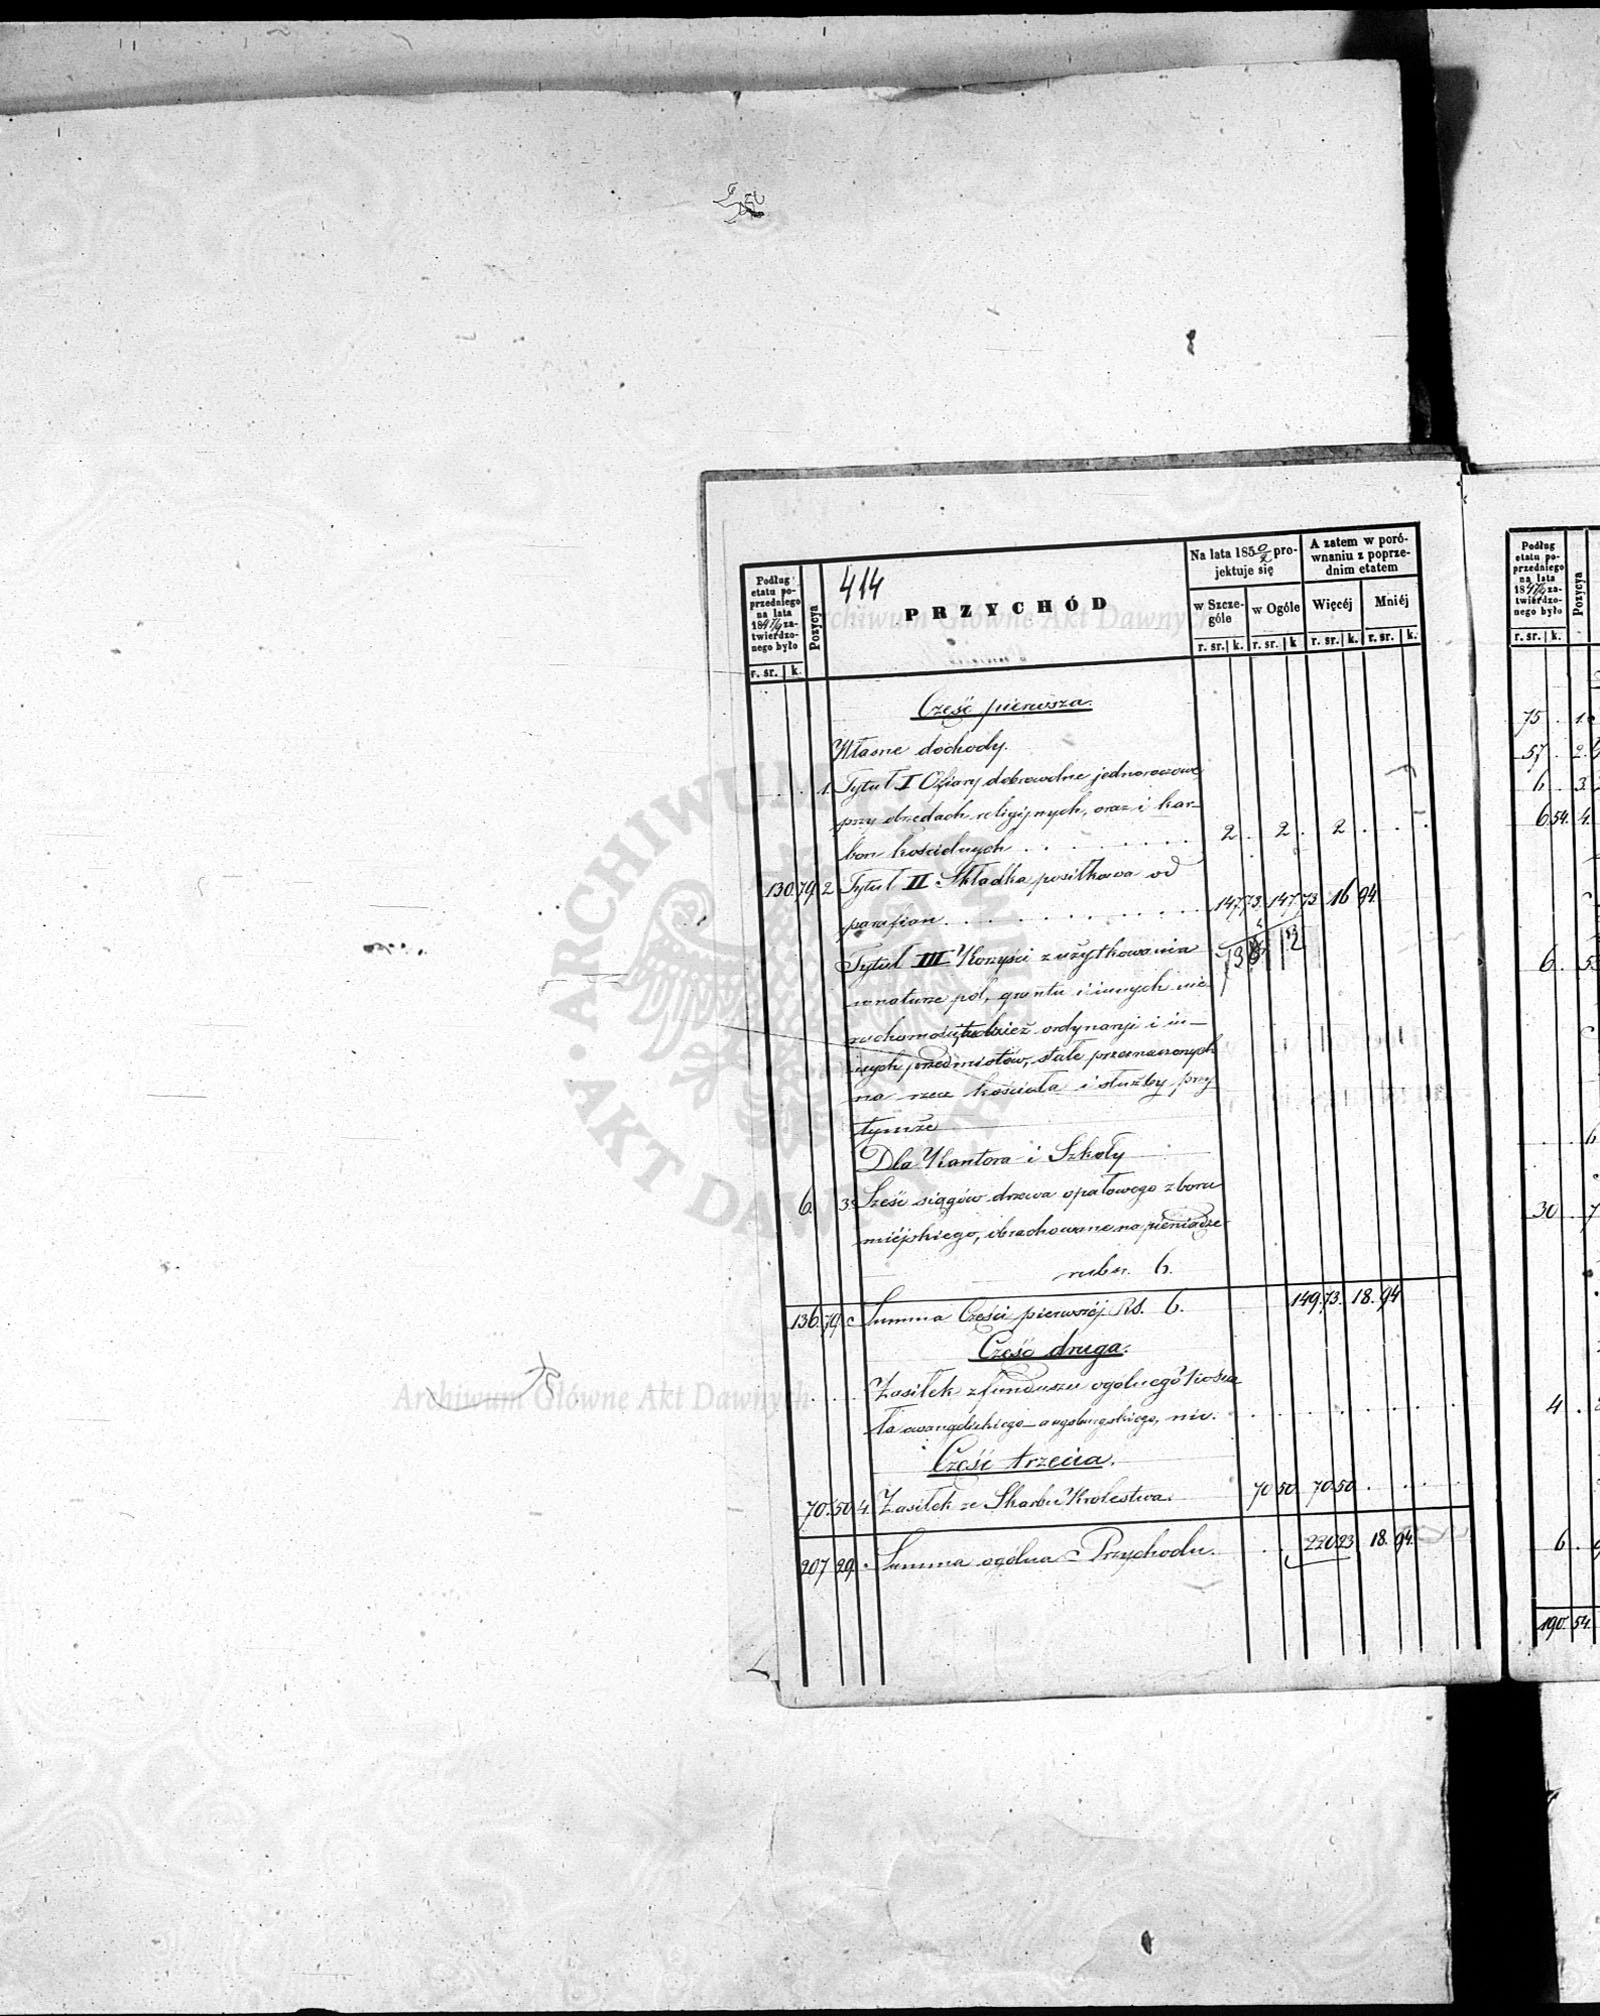 414
PRZYCHÓD
Podług
etatu po-
przedniego
na lata
za-
twierdzo-
nego było
r. sr. k.
Pozycya
Na lata 1850/2 pro-
jektuje się
w Szcze-
góle
w Ogóle
r. sr. k. r. sr. k
A zatem w poró-
wnaniu z poprze-
dnim etatem
Więcéj Mniéj
r. sr. k. r. sr. k.
Część pierwsza.
Własne dochody.
1. Tytuł I Ofiary dobrowolne jednorazowe
przy obrzędach religijnych, oraz i kar-
bon kościelnych . . . . . . . 2 . 2 . 2 . . .
130 79 2 Tytuł II Składka posiłkowa od
parafian . . . . . . . . . . . 147 73. 147 73 16 94
Tytuł III Korzyści z użytkowania
w naturze pól, gruntu i innych nie-
ruchomości, tudzież ordynarji i in-
nych przedmiotów, stale przeznaczonych
na rzecz kościoła i służby przy
tymże
Dla Kantora i Szkoły
6. 3. Sześć siągów drzewa opałowego z boru
miéjskiego, obrachowane na pieniądze
rubsr. 6.
136. 79 Summa Części pierwszéj Rs. 6. 149 73. 18. 94
Część druga.
Zasiłek z funduszu ogólnego Kościo
ła ewangelicko-augsburgskiego, nic.
Część trzecia.
70. 50 4. Zasiłek ze Skarbu Królestwa. 70 50 70 50
207 29. Summa ogólna Przychodu. 220 23 18. 94.
Podług
etatu po-
przedniego
na lata
za-
twierdzo-
nego było
r. sr. k.
Pozycya
75
57 2.
6 3
6 54. 4.
6. 5
6
30 7
4
6
190. 54.
Archiwum Główne Akt Dawnych
Archiwum Główne Akt Dawnych
ARCHIWUM GŁÓWNE AKT DAWNYCH